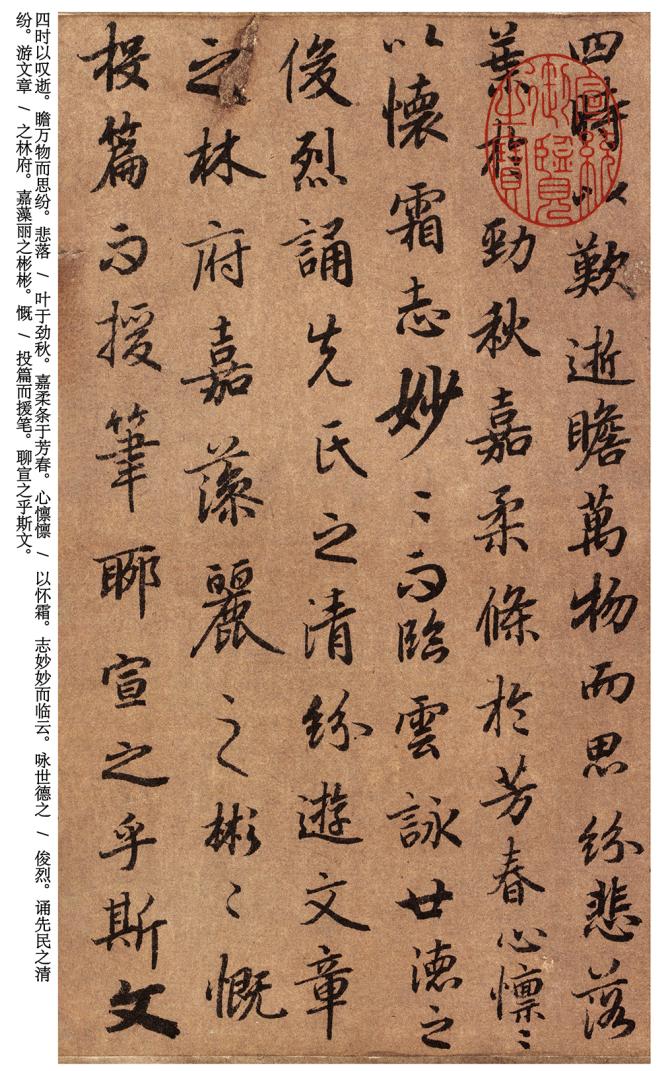 四時以歎逝瞻萬物而思紛悲落
葉於勁秋嘉柔條於芳春心懍〻
以懷霜志妙〻而臨雲詠世德之
俊烈誦先民之清紛遊文章
之林府嘉藻麗之彬〻慨
投篇而援筆聊宣之乎斯文
宣統
御覽
之寶
四时以叹逝。瞻万物而思纷。悲落 / 叶于劲秋。嘉柔条于芳春。心懔懔 / 以怀霜。志妙妙而临云。咏世德之 / 俊烈。诵先民之清
纷。游文章 / 之林府。嘉藻丽之彬彬。慨 / 投篇而援笔。聊宣之乎斯文。